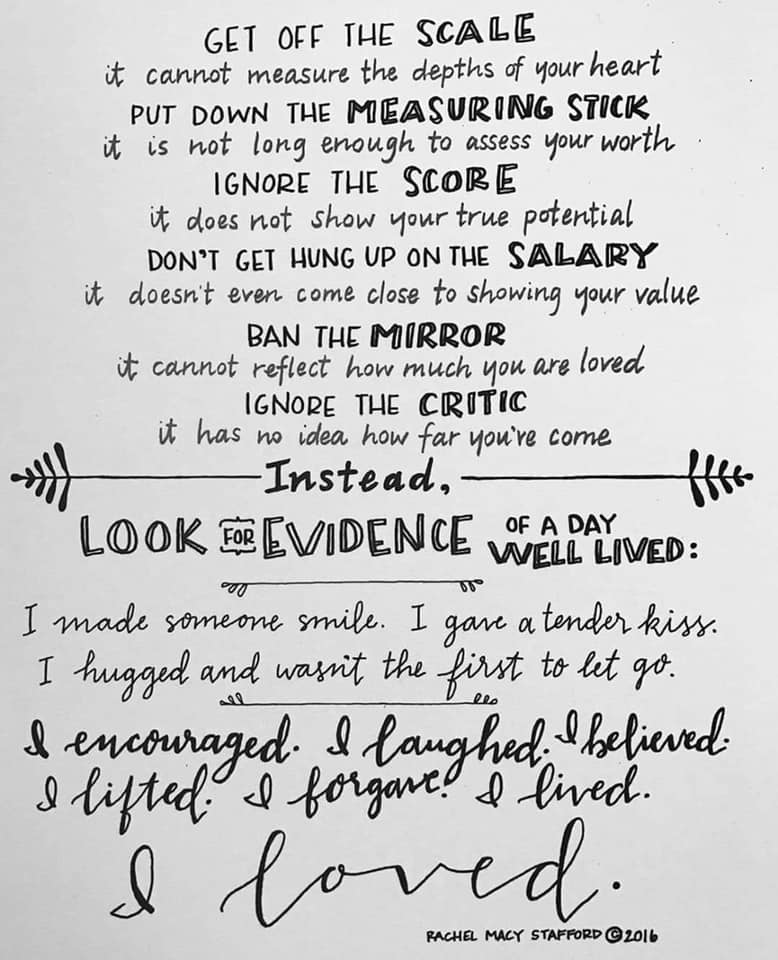 GET OFF THE SCALE
it cannot measure the depths of your heart
PUT DOWN THE MEASURING STICK
it is not long enough to assess your worth
IGNORE THE SCORE
it does not show your true potential
DON'T GET HUNG UP ON THE SALARY
it doesn't even come close to showing your value
BAN THE MIRROR
it cannot reflect how much you are loved
IGNORE THE CRITIC
it has no idea how far you're come
Instead,
LOOK FOR EVIDENCE OF A DAY WELL LIVED:
I made someone smile. I gave a tender kiss.
I hugged and wasn't the first to let go.
I encouraged. I laughed. I believed.
I lifted. I forgave. I lived.
I loved.
RACHEL MACY STAFFORD ©2016